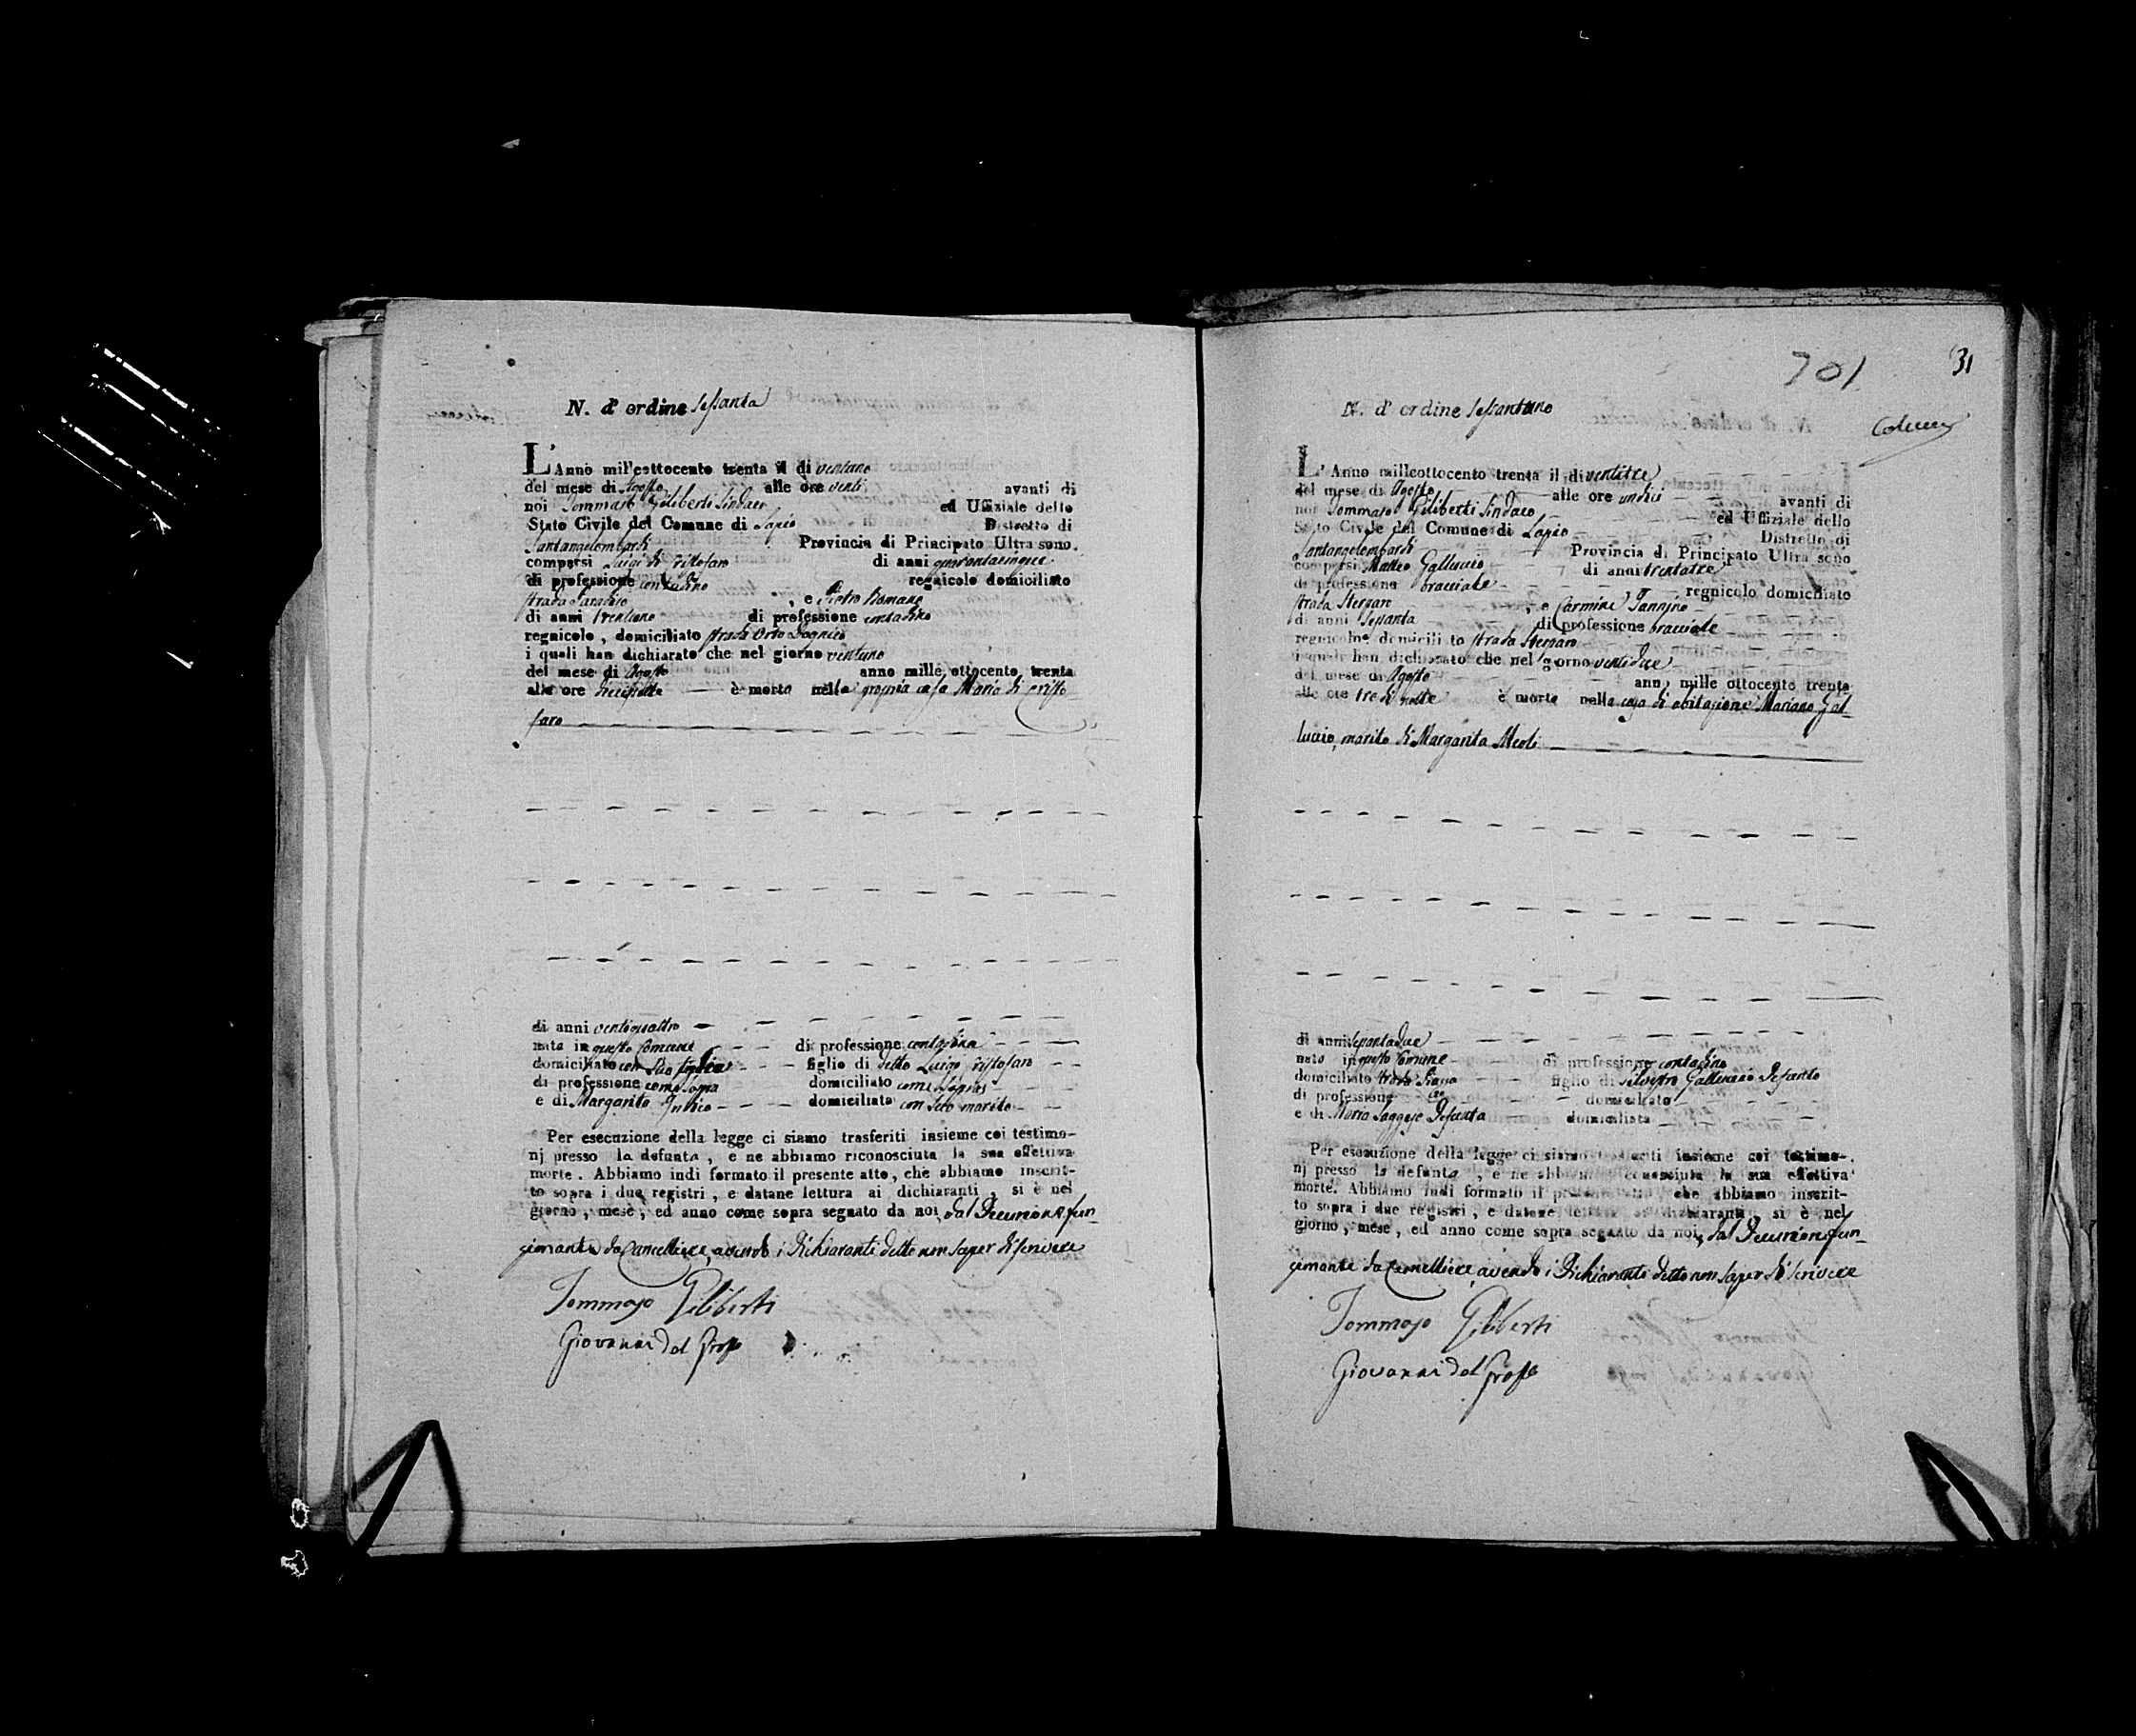 N. d' ordine Sessanta
L'Anno mill'eottocento trenta il di ventuno
del mese di Agosto alle ore venti avanti di
noi Tommaso Giliberti Sindaco ed Uffiziale dello
Stato Civile del Comune di Lapio Distretto di
Santangelombardi Provincia di Principato Ultra sono
comparsi Luigi di Cristofaro di anni quarantacinque
di professione contadino regnicolo domiciliato
strada Paradiso , e Pietro Romano
di anni trentuno di professione contadino
regnicolo , domiciliato strada Orto
i quali han dichiarato che nel giorno ventuno
del mese di Agosto anno mille ottocento trenta
alle ore diecisette è morta nella propria casa Maria di Cristo
faro
di anni ventiquattro
nata in questo Comune di professione contadina
domiciliato con figlio di detto Luigi Cristofaro
di professione come sopra domiciliato come sopra
e di Margarita domiciliata con suo marito
Per esecuzione della legge ci siamo trasferiti insieme coi testimo-
nj presso la defunta , e ne abbiamo riconosciuta la sua effettiva
morte . Abbiamo indi formato il presente atto, che abbiamo inscrit-
to sopra i due registri , e datane lettura ai dichiaranti , si è nel
giorno , mese , ed anno come sopra segnato da noi, dal Decurione fun-
zionante da Cancelliere, avendo i Dichiaranti detto non saper di scrivere
Tommaso Giliberti
Giovanni del Grosso
701 31
N. d' ordine Sessantuno
L' Anno milleottocento trenta il di ventitre
del mese di Agosto alle ore undici avanti di
noi Tommaso Giliberti Sindaco ed Uffiziale dello
Stato Civile del Comune di Lapio Distretto di
Santangelombardi Provincia di Principato Ultra sono
comparsi Matteo Galluccio di anni trentatre
di professione bracciale regnicolo domiciliato
strada Sterzaro , e Carmine Iannino
di anni Sessanta di professione bracciale
regnicolo domiciliato strada Sterzaro
i quali han dichiarato che nel giorno ventidue
del mese di Agosto anno mille ottocento trenta
alle ore tre di notte è morto nella casa di abitazione Mariano Gal-
luccio, marito di Margarita Meoli
di anni Sessantadue
nato in questo Comune di professione contadino
domiciliato strada figlio di Silvestro Galluccio Defunto
di professione domiciliato
e di Maria Saggese Defunta domiciliata
Per esecuzione della legge ci siamo trasferiti insieme coi testimo-
nj presso la defunta , e ne abbiamo riconosciuta la sua effettiva
morte. Abbiamo indi formato il presente atto, che abbiamo inscrit-
to sopra i due registri , e datane lettura ai dichiaranti si è nel
giorno , mese , ed anno come sopra segnato da noi, dal Decurione fun-
zionante da Cancelliere, avendo i Dichiaranti detto non saper di scrivere
Tommaso Giliberti
Giovanni del Grosso